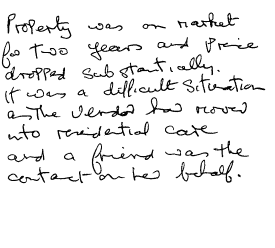 Property was on market
for two years and Price
dropped substantially.
it was a difficult situation
as the vendor has moved
into residential care
and a friend was the
contact on her behalf.